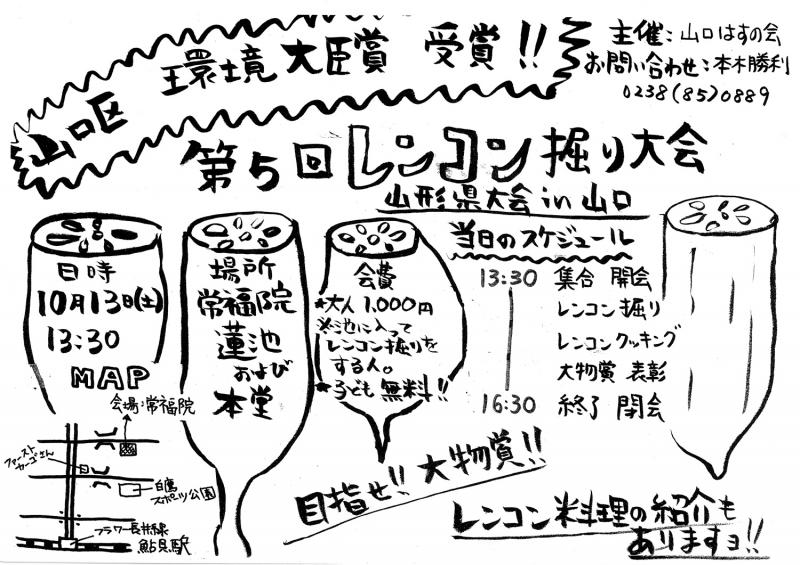 山口区 環境大臣賞 受賞!!
主催:山口はすの会
お問い合わせ:本木勝利
0238(85)0889
第5回レンコン掘り大会
山形県大会 in 山口
日時
10月13日(土)
13:30
場所
常福院
蓮池
および
本堂
会費
★大人 1,000円
※池に入って
レンコン掘りを
する人。
★子ども 無料!!
当日のスケジュール
13:30 集合 開会
レンコン掘り
レンコンクッキング
大物賞 表彰
16:30 終了 閉会
MAP
会場:常福院
ファースト
カーゴさん
白鷹
スポーツ公園
フラワー長井線
鮎貝駅
目指せ!! 大物賞!!
レンコン料理の紹介も
ありますョ!!